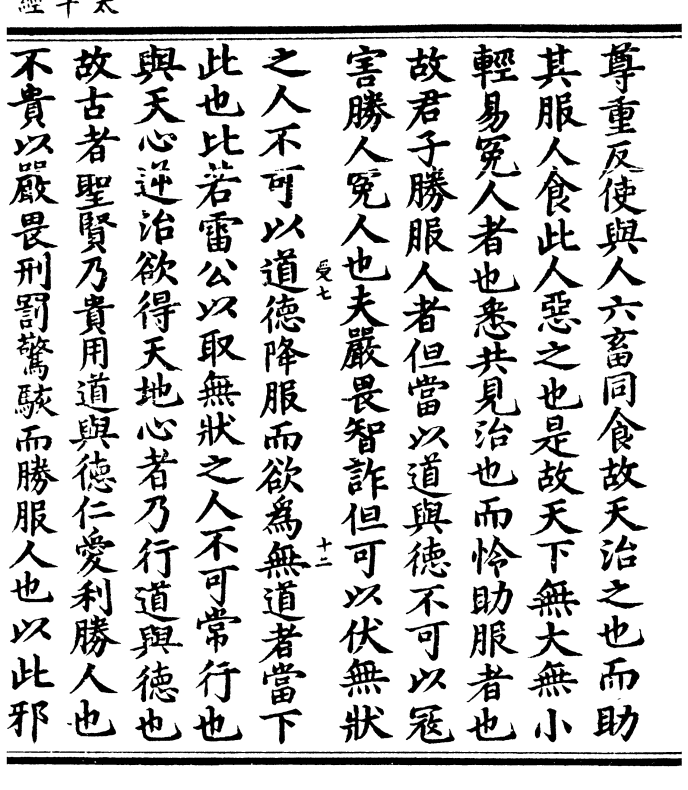 尊重反使與人六畜同食故天治之也而助
其服人食此人惡之也是故天下無大無小
輕易冤人者也悉共見治也而怜助服者也
故君子勝服人者但當以道與德不可以寇
害勝人冤人也夫嚴畏智詐但可以伏無狀
受七 十二
之人不可以道德降服而欲爲無道者當下
此也比若雷公以取無狀之人不可常行也
與天心逆治欲得天地心者乃行道與德也
故古者聖賢乃貴用道與德仁愛利勝人也
不貴以嚴畏刑罰驚駭而勝服人也以此邪